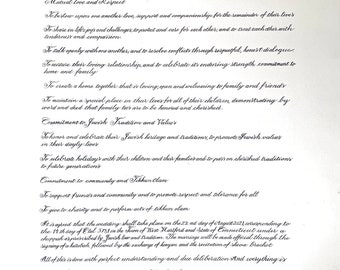 Mutual Love and Respect
To bestow upon one another love, support and companionship for the remainder of their lives
To share in life's joys and challenges, to protect and care for each other, and to treat each other with
tenderness and compassion.
To talk openly with one another, and to resolve conflicts through respectful, honest dialogue.
To nurture their loving relationship, and to celebrate its enduring strength, commitment to
home and family
To create a home together that is loving, open and welcoming to family and friends
To maintain a special place in their lives for all of their children, demonstrating by
word and deed that family ties are to be honored and cherished.
Commitment to Jewish Tradition and Values
To honor and celebrate their Jewish heritage and traditions, to promote Jewish values
in their daily lives
To celebrate holidays with their children and their families and to pass on cherished traditions
to future generations
Commitment to community and Tikkun Olam
To support friends and community and to promote respect and tolerance for all
To give to charity and to perform acts of tikkun olam.
It is agreed that the wedding shall take place on the day of August corresponding to
the day of in the Town of West Hartford and State of Connecticut under a
chuppah as prescribed by Jewish law and tradition. The marriage will be made official through the
signing of a ketubah, followed by the exchange of rings and the recitation of
All of this is done with perfect understanding and due deliberation. And everything is